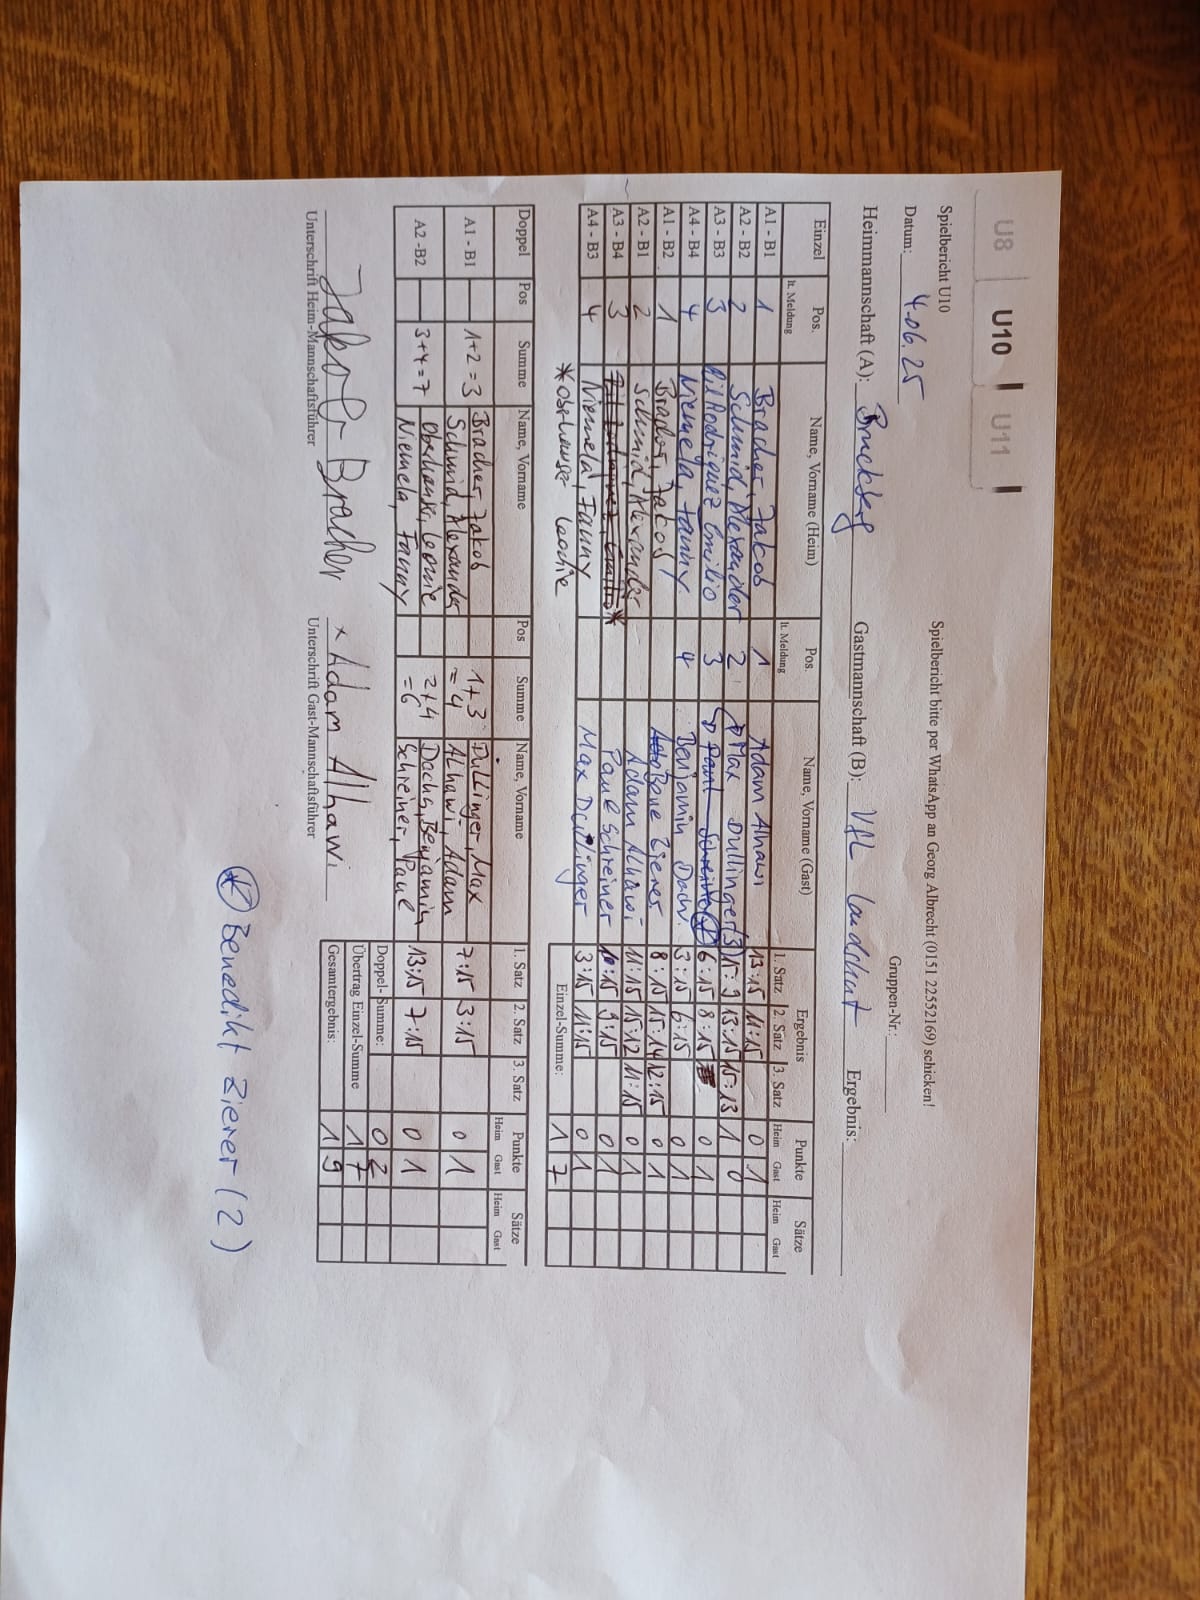 U8 | U10 | U11 |
Spielbericht U10
Spielbericht bitte per WhatsApp an Georg Albrecht (0151 22552169) schicken!
Datum: 4.06.25
Gruppen-Nr.:
Heimmannschaft (A): Bruckberg Gastmannschaft (B): VfL Landshut Ergebnis:
Einzel Pos. lt. Meldung Name, Vorname (Heim) Pos. lt. Meldung Name, Vorname (Gast) Ergebnis Punkte Sätze
1. Satz 2. Satz 3. Satz Heim Gast Heim Gast
A1 - B1 1 Bracher, Jakob 1 Adam Alhawi 13:15 11:15 0 1
A2 - B2 2 Schmid, Alexander 2 Max Dullinger (3) 15:9 13:15 15:13 1 0
A3 - B3 3 Gil Rodriguez Emilio 3 Paul Schreiner 6:15 8:15 0 1
A4 - B4 4 Niemela, Fanny 4 Benjamin 3:15 6:15 0 1
A1 - B2 1 Bracher, Jakob Bene Zierer 8:15 15:14 12:15 0 1
A2 - B1 2 Schmid, Alexander Adam Alhawi 11:15 15:12 11:15 0 1
A3 - B4 3 Gil Rodriguez Emilio * Paul Schreiner 10:15 9:15 0 1
A4 - B3 4 Niemela, Fanny Max Dullinger 3:15 11:15 0 1
Einzel-Summe: 1 7
Doppel Pos Summe Name, Vorname Pos Summe Name, Vorname 1. Satz 2. Satz 3. Satz Punkte Sätze
Heim Gast Heim Gast
A1 - B1 1+2=3 Bracher, Jakob 1+3 Dullinger, Max 7:15 3:15 0 1
Schmid, Alexander =4 Alhawi, Adam
A2 -B2 3+4=7 2+4 13:15 7:15 0 1
Niemela, Fanny =6 Schreiner, Paul
Doppel-Summe: 0 2
Übertrag Einzel-Summe 1 7
Gesamtergebnis: 1 9
Jakob Bracher x Adam Alhawi
Unterschrift Heim-Mannschaftsführer Unterschrift Gast-Mannschaftsführer
* Benedikt Zierer (2)